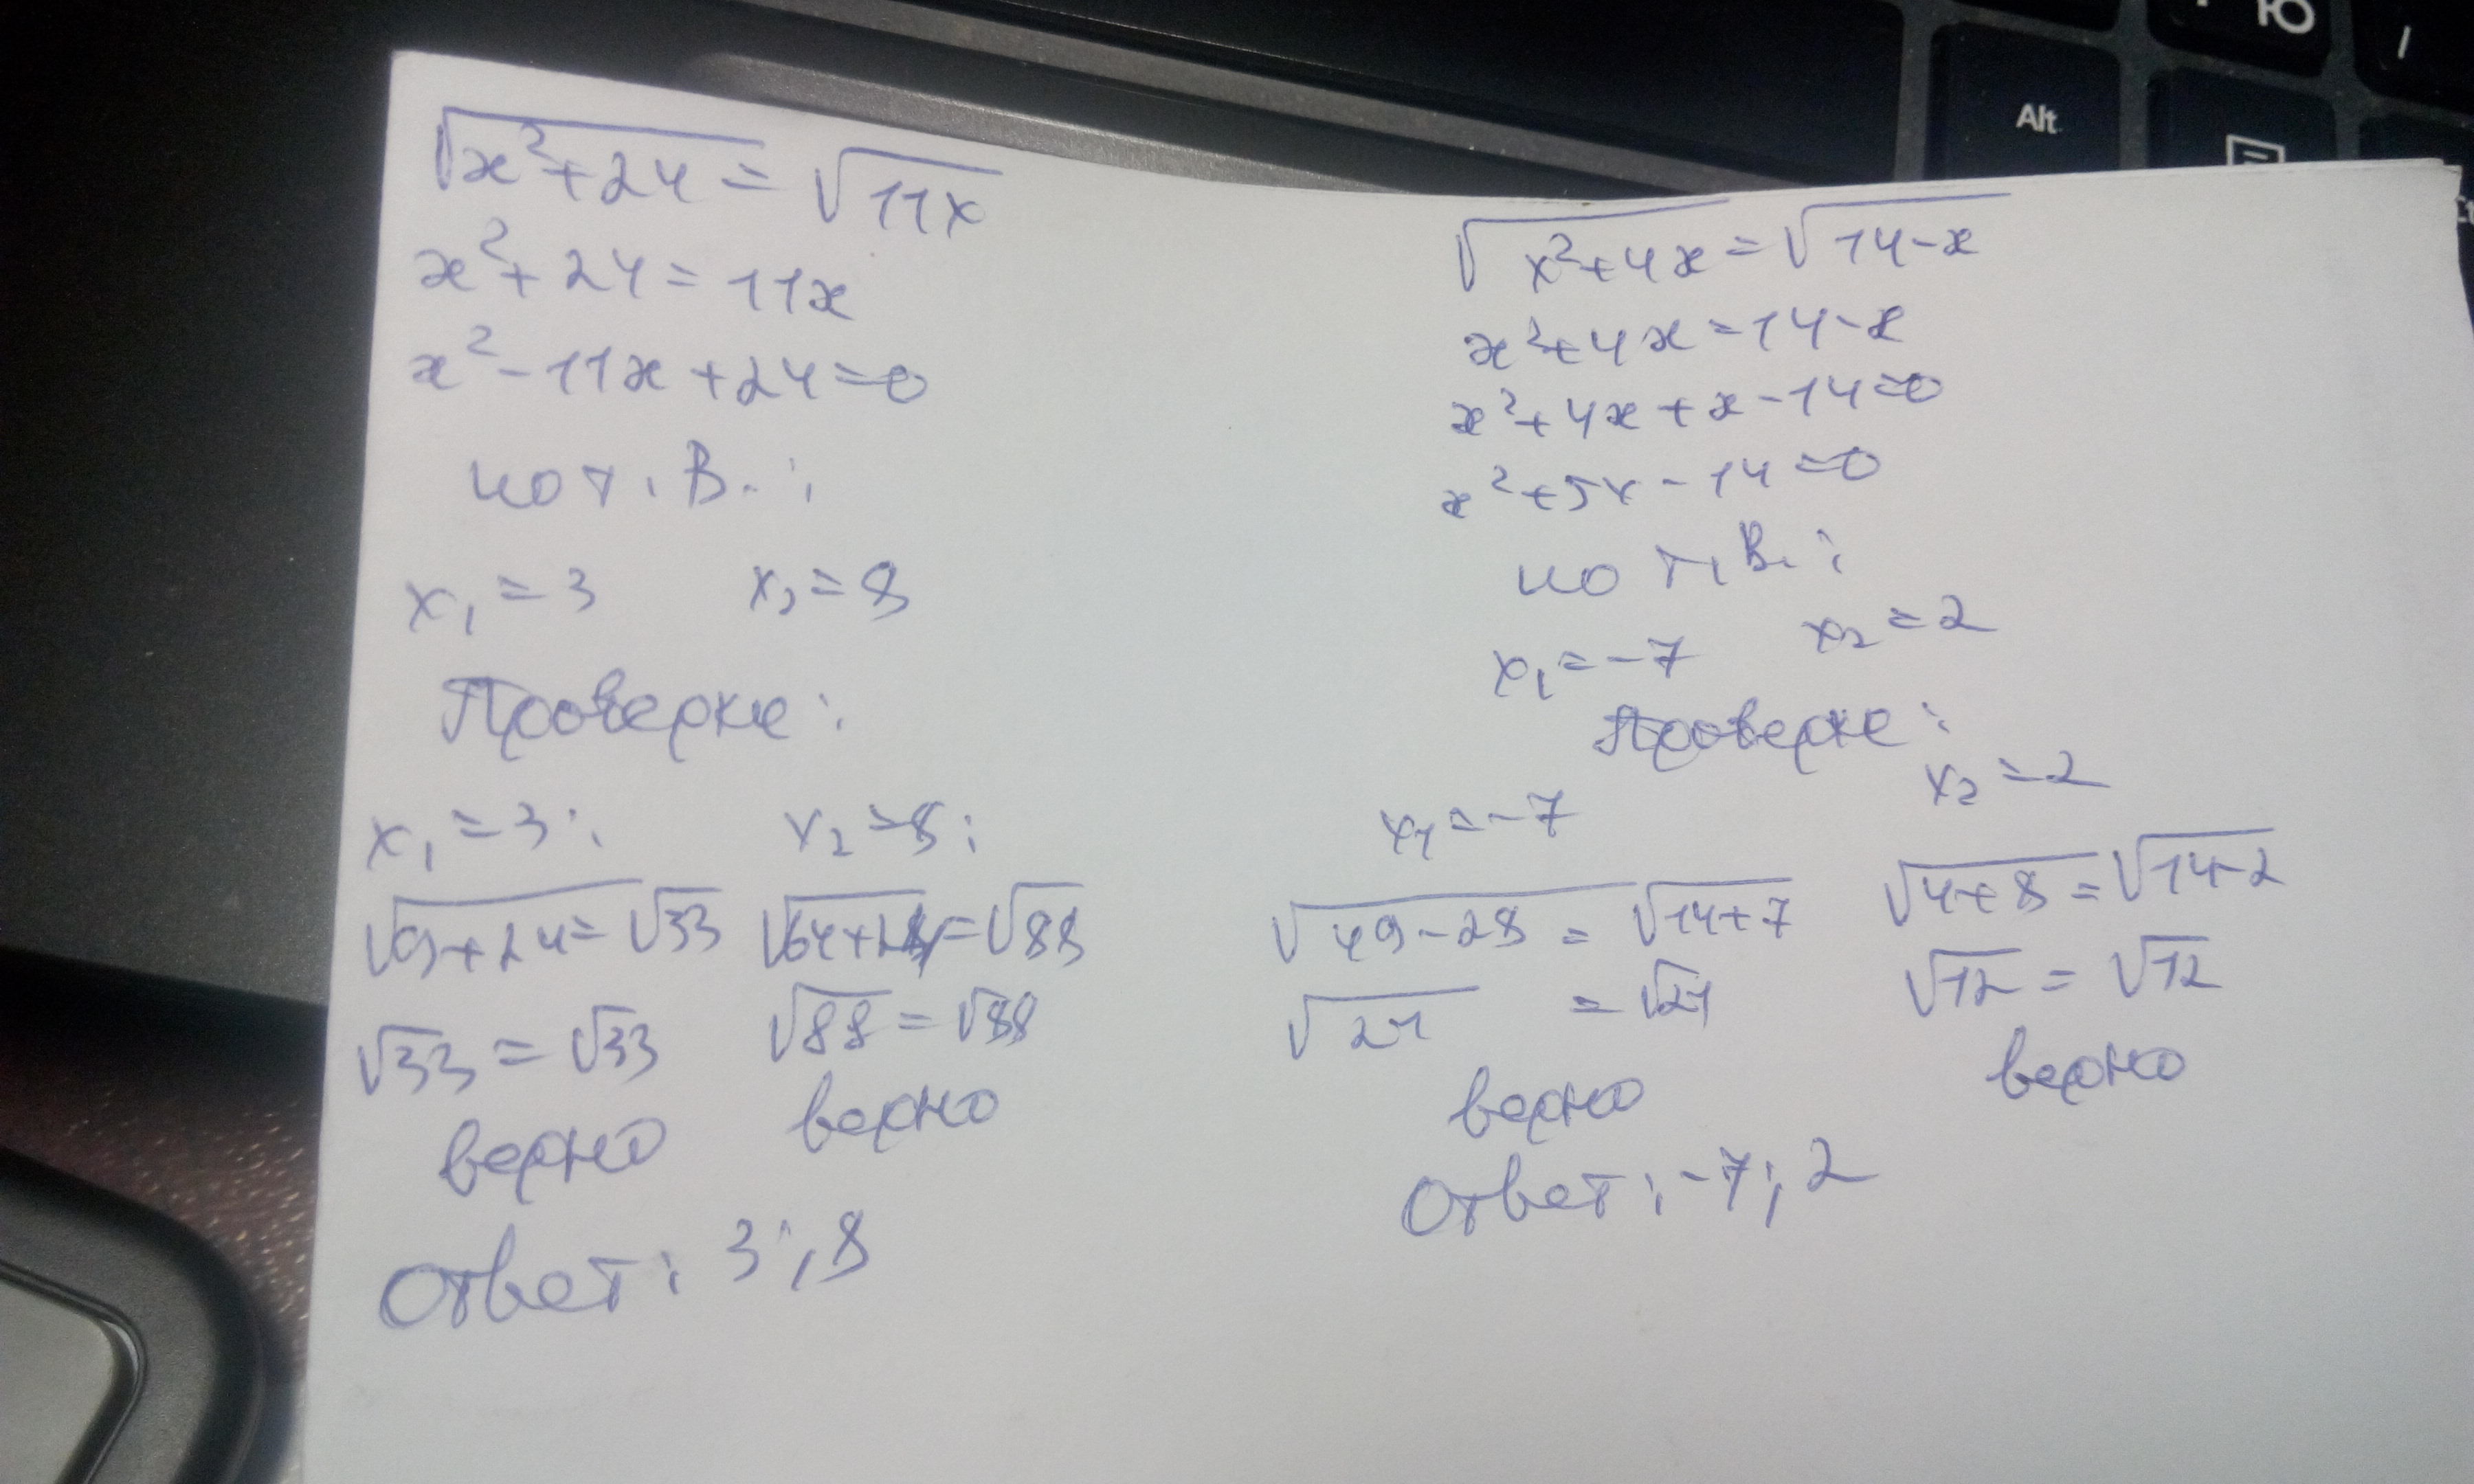 Ю
Alt
√x²+24 = √11x
x²+24 = 11x
x²-11x+24=0
по т. В.:
x₁=3 x₂=8
Проверка:
x₁=3: x₂=8:
√9+24=√33 √64+24=√88
√33=√33 √88=√88
верно верно
Ответ: 3;8
√x²+4x=√14-x
x²+4x=14-x
x²+4x+x-14=0
x²+5x-14=0
по т. В.:
x₁=-7 x₂=2
Проверка:
x₁=-7 x₂=2
√49-28=√14+7 √4+8=√14-2
√21=√21 √12=√12
верно верно
Ответ: -7; 2